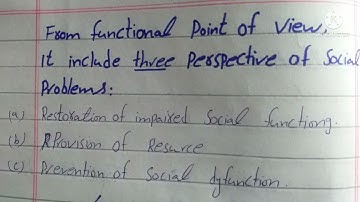 From functional Point of View,
It include three Perspective of Social
Problems:
(a) Restoration of impaired Social functiong.
(b) Provision of Resurce
(c) Prevention of Social dyfunction.